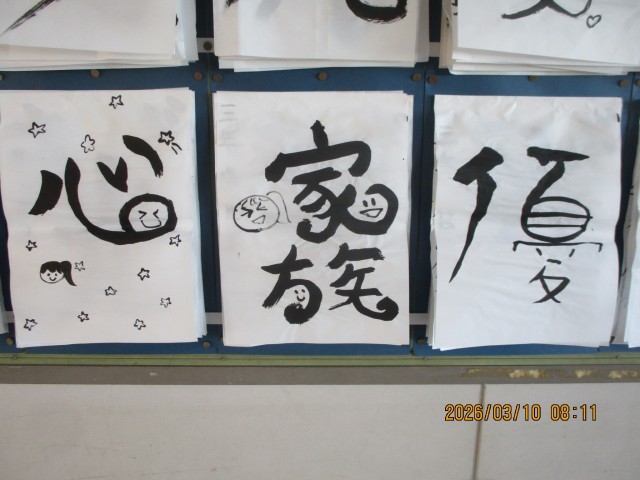 心
家
族
優
2026/03/10 08:11